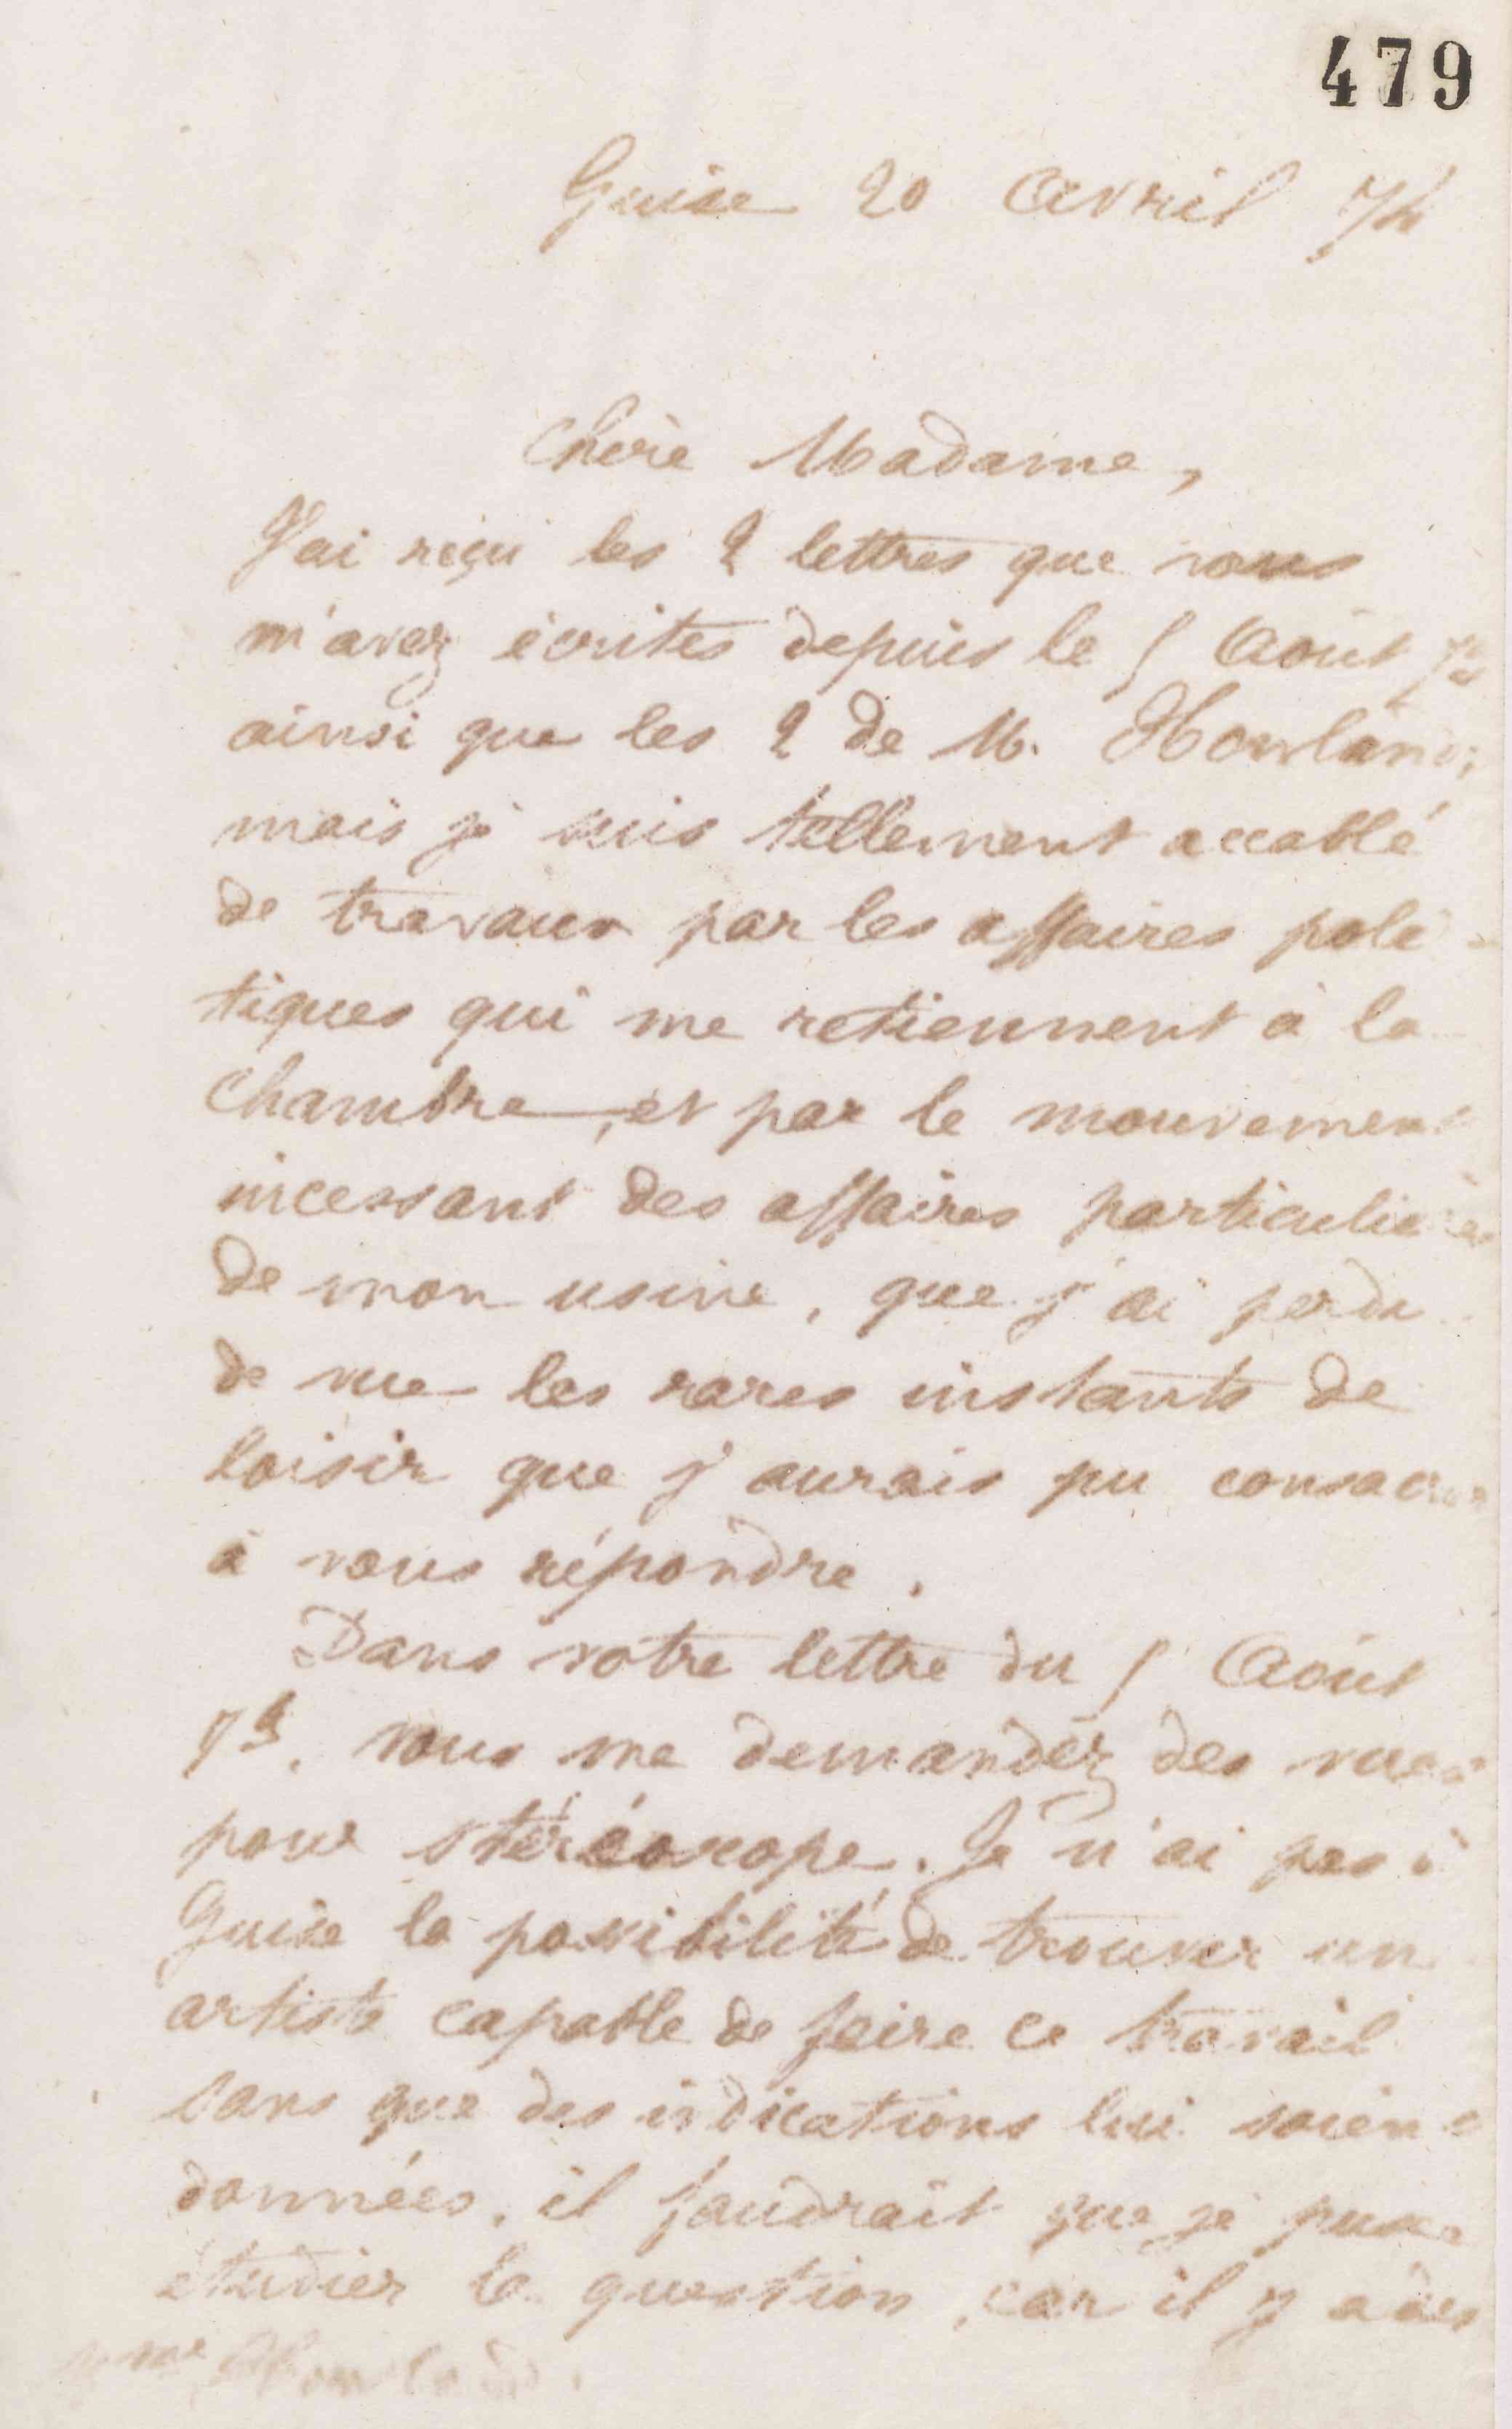 479
Guise 20 Avril 74
Chère Madame,
J'ai reçu les 2 lettres que vous
m'avez écrites depuis le 5 Août
ainsi que les 2 de M. Howland;
mais je suis tellement accablé
de travaux par les affaires poli-
tiques qui me retiennent à la
Chambre, et par le mouvement
incessant des affaires particulières
de mon usine, que j'ai perdu
de vue les rares instants de
loisir que j'aurais pu consacrer
à vous répondre.
Dans votre lettre du 5 Août
73, vous me demandez des vues
pour stéréoscope. Je n'ai pas à
Guise la possibilité de trouver un
artiste capable de faire ce travail
sans que des indications lui soient
données, il faudrait que je puisse
étudier la question, car il y a des
Mme Howland.